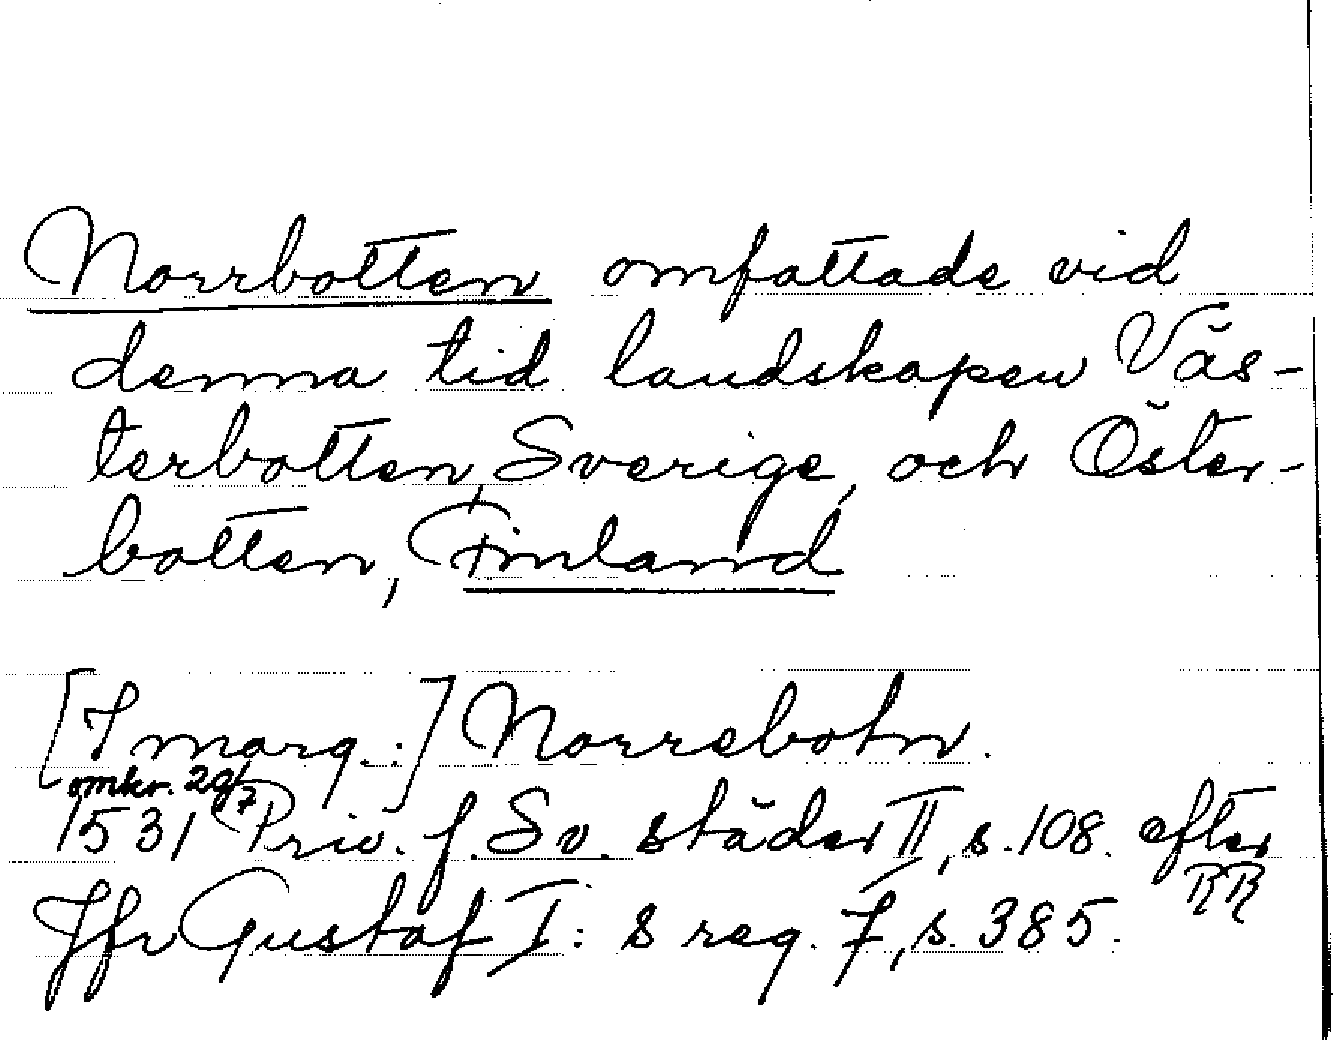 Norrbotten omfattade vid
denna tid landskapen Väs-
terbotten, Sverige, och Öster-
botten, Finland
[I marg.:] Norrebotn.
omkr. 29/7
1531 Priv. f. Sv. städer II, s. 108. efter
RR
Jfr Gustaf I:s reg. 7, s. 385.